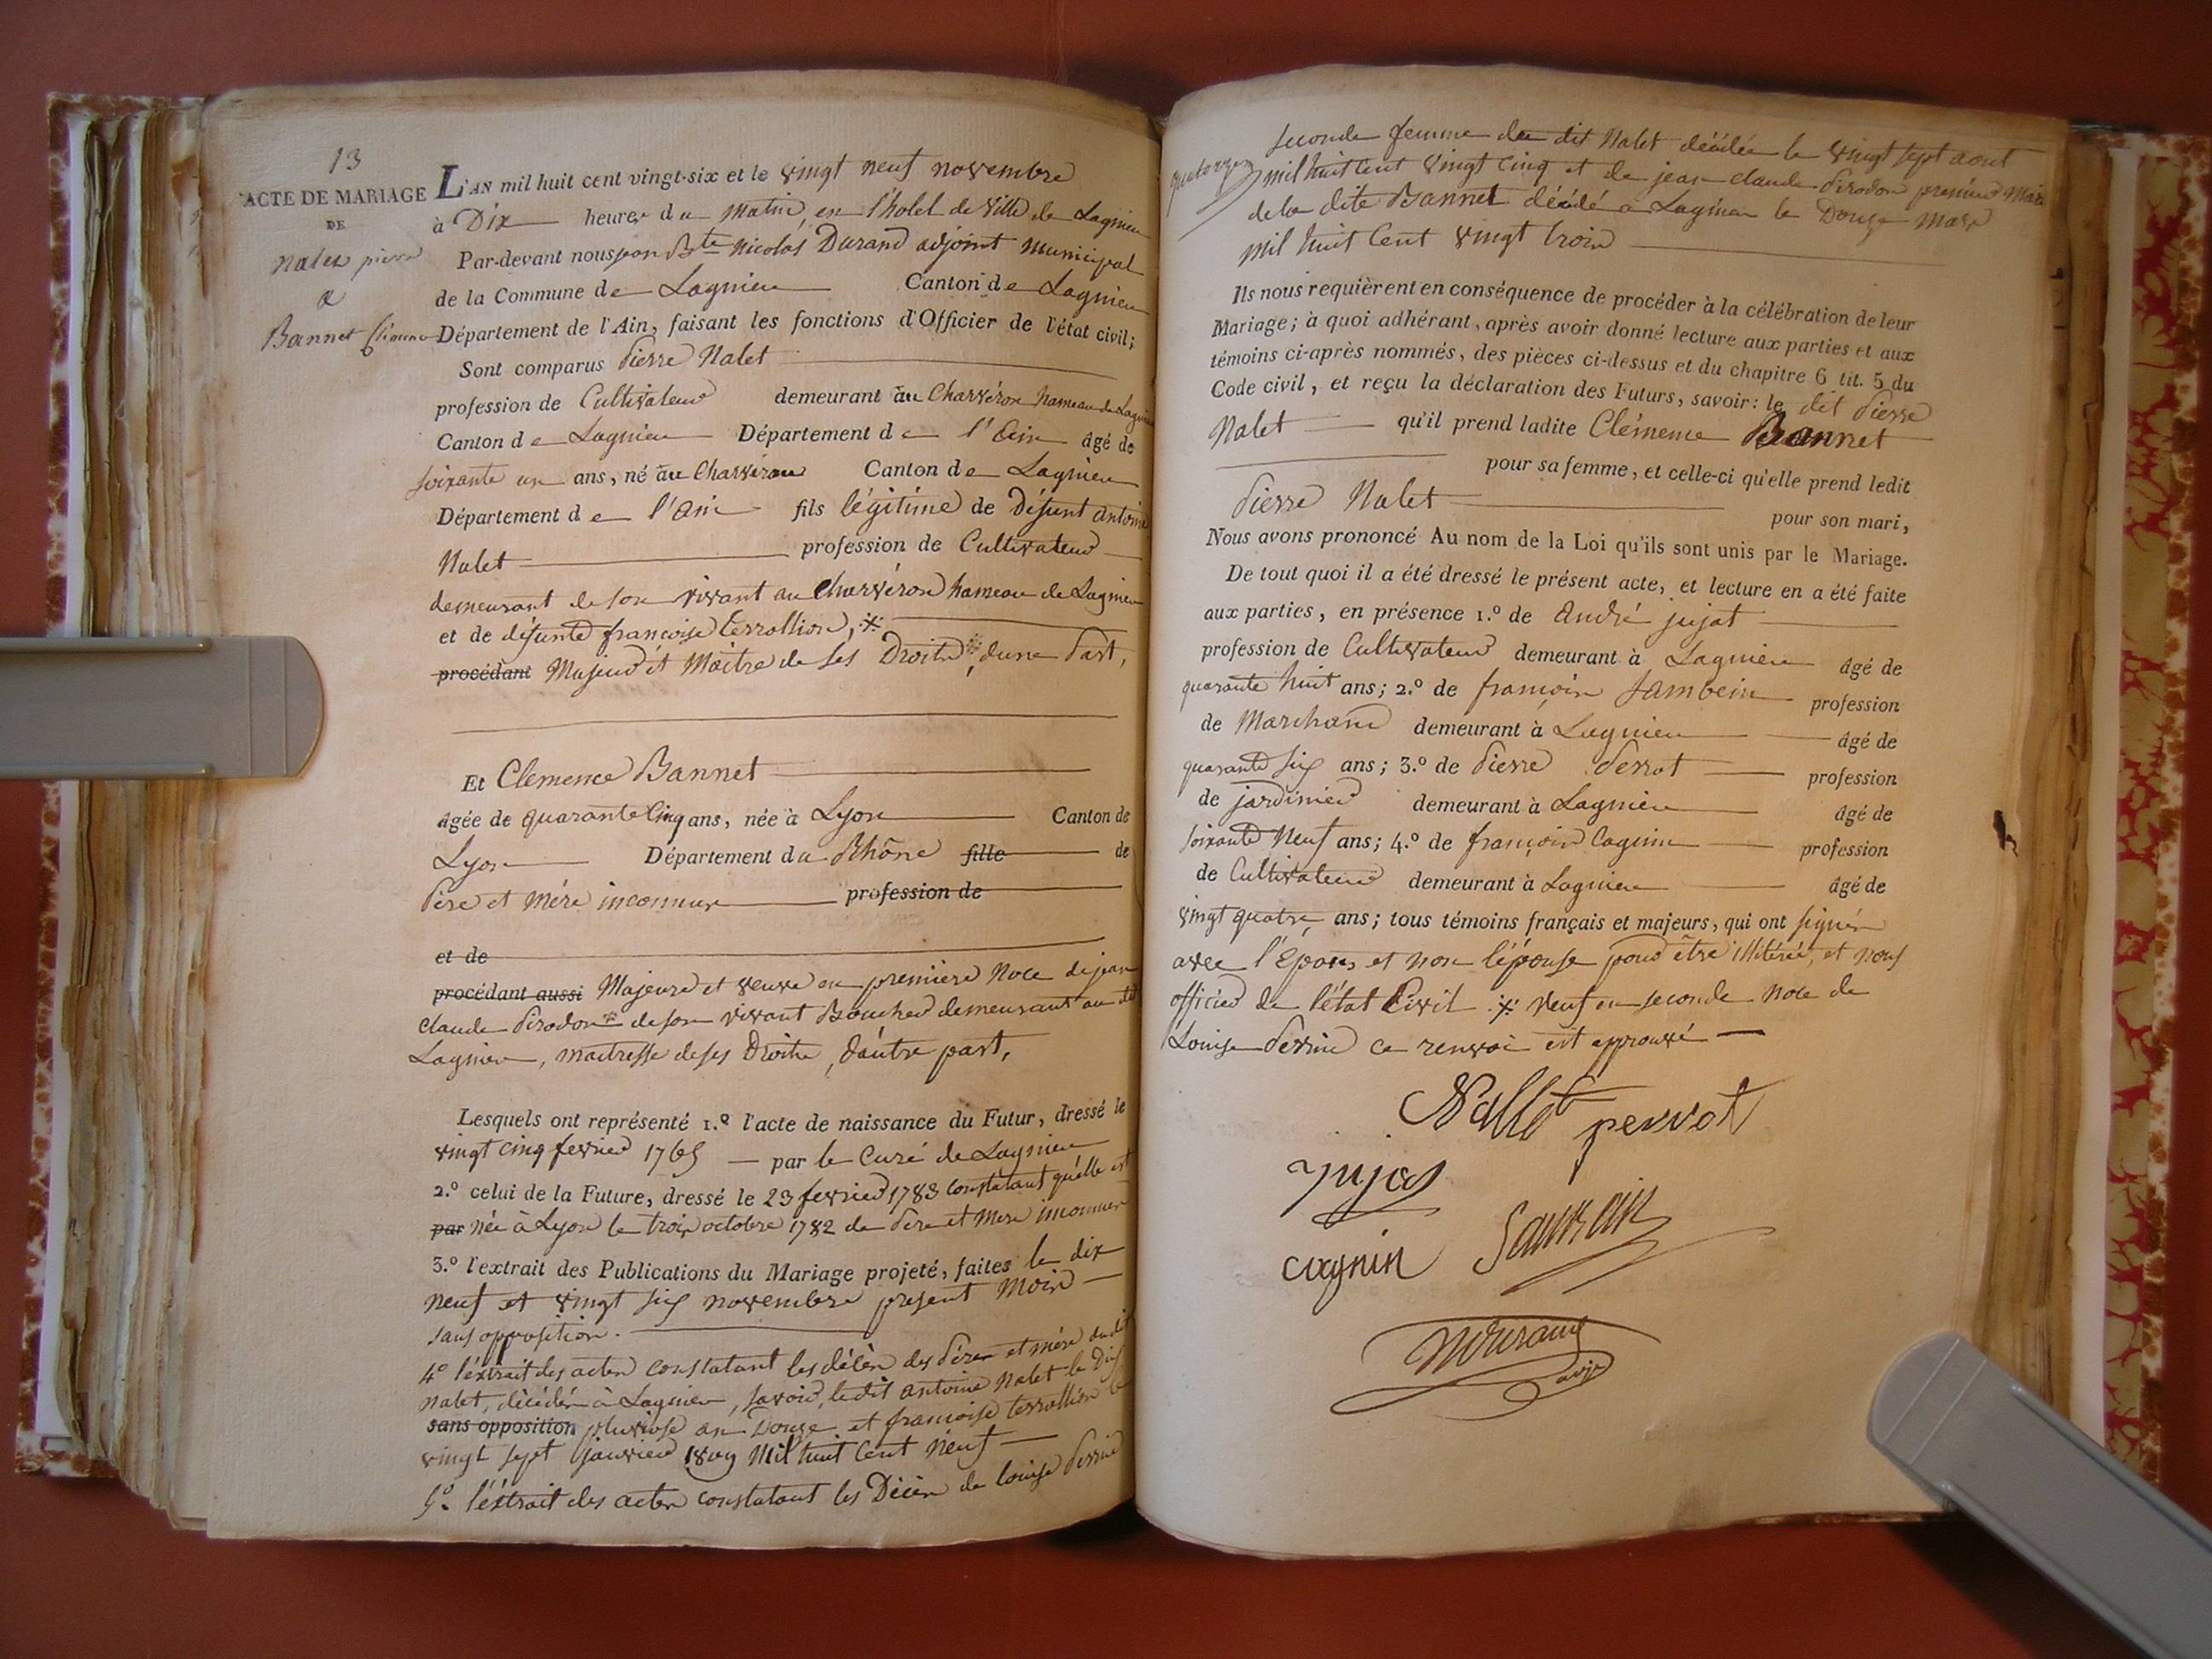 13
ACTE DE MARIAGE
DE
Nalet pierre
&
Bannet Clémence
L'AN mil huit cent vingt-six et le vingt neuf novembre
à Dix heures du matin, en l'hotel de ville de Lagnieu
Par-devant nous jean Bte nicolas Durand adjoint municipal
de la Commune de Lagnieu Canton de Lagnieu
Département de l'Ain, faisant les fonctions d'Officier de l'état civil;
Sont comparus Pierre Nalet
profession de Cultivateur demeurant au Charvéron hameau de Lagnieu
Canton de Lagnieu Département de l'Ain âgé de
soixante un ans, né au Charvéron Canton de Lagnieu
Département de l'Ain fils légitime de Défunt antoine
Nalet profession de Cultivateur
demeurant de son vivant au Charvéron hameau de Lagnieu
et de défunte françoise Terrollion, ※
procédant Majeur et Maitre de ses Droits, d'une Part,
Et Clemence Bannet
âgée de quarante Cinq ans, née à Lyon Canton de
Lyon Département du Rhône fille de
Père et Mère inconnus profession de
et de
procédant aussi Majeure et veuve en première Noce de jean
Claude Pirodon de son vivant Boucher demeurant au dit
Lagnieu, maitresse de ses Droits, d'autre part,
Lesquels ont représenté 1.º l'acte de naissance du Futur, dressé le
vingt cinq fevrier 1765 par le Curé de Lagnieu
2.º celui de la Future, dressé le 23 fevrier 1783 constatant qu'elle est
par née à Lyon le trois octobre 1782 de Père et Mere inconnus
3.º l'extrait des Publications du Mariage projeté, faites le dix
neuf et vingt six novembre present Mois
sans opposition.
4º l'extrait des actes constatant les décès des Père et mère du dit
Nalet, décédés à Lagnieu, savoir, ledit antoine Nalet le Dix
sans opposition pluviose an Douze et françoise terrollion le
vingt sept janvier 1809 Mil huit Cent neuf
5º l'extrait des actes constatant les Décès de louise Perrin
quatorze
seconde femme du dit Nalet décédée le vingt sept aout
mil huit Cent vingt Cinq et de jean claude Pirodon premier Mari
de la dite Bannet décédé a Lagnieu le Douze mars
mil huit Cent vingt trois
Ils nous requièrent en conséquence de procéder à la célébration de leur
Mariage; à quoi adhérant, après avoir donné lecture aux parties et aux
témoins ci-après nommés, des pièces ci-dessus et du chapitre 6 tit. 5 du
Code civil, et reçu la déclaration des Futurs, savoir: le dit Pierre
Nalet qu'il prend ladite Clémence Bannet
pour sa femme, et celle-ci qu'elle prend ledit
Pierre Nalet pour son mari,
Nous avons prononcé Au nom de la Loi qu'ils sont unis par le Mariage.
De tout quoi il a été dressé le présent acte, et lecture en a été faite
aux parties, en présence 1.º de André jujat
profession de Cultivateur demeurant à Lagnieu âgé de
quarante huit ans; 2.º de françois
profession
de Marchand demeurant à Lagnieu âgé de
quarante six ans; 3.º de Pierre Perrot profession
de jardinier demeurant à Lagnieu âgé de
soixante Neuf ans; 4.º de françois Cognin profession
de Cultivateur demeurant à Lagnieu âgé de
vingt quatre ans; tous témoins français et majeurs, qui ont signés
avec l'Epoux et non l'épouse pour être illitérée, et nous
officier de l'état Civil. ※ Veuf en seconde Noce de
Louise Perrin ce renvoi est approuvé
Nallet perrot
jujat
cognin
NDurand
adjt